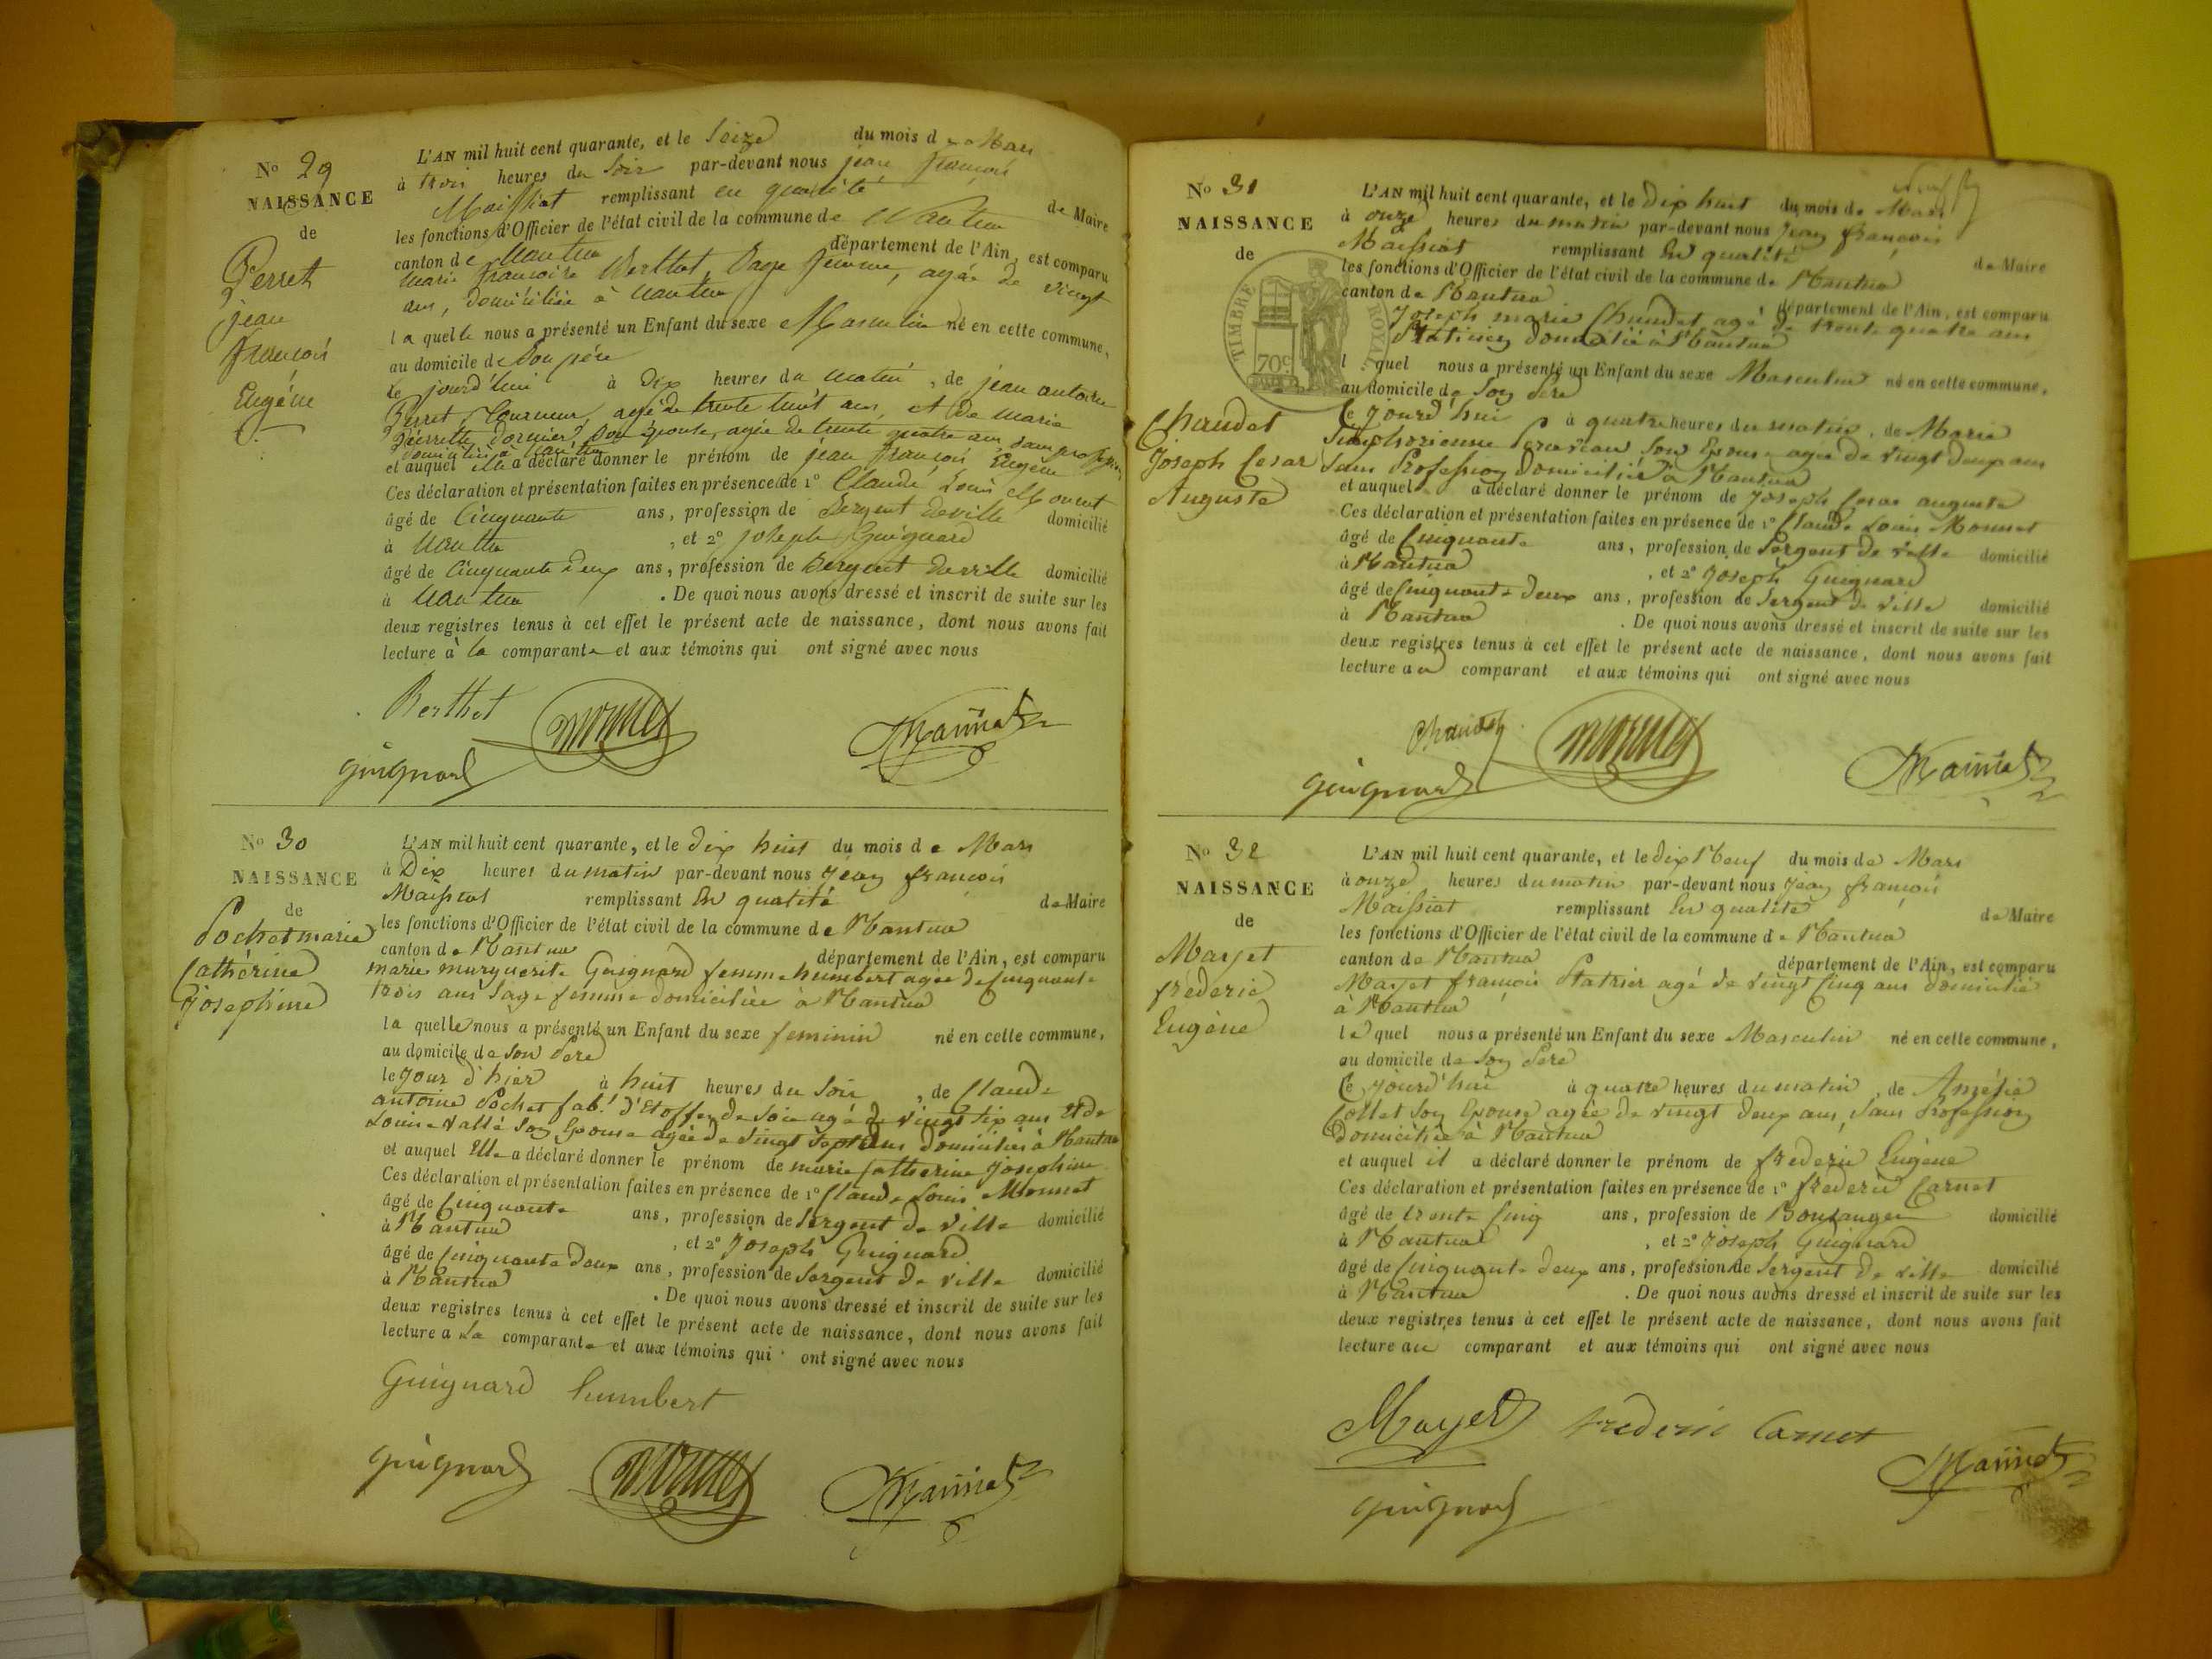 N° 29
NAISSANCE
de
Perret
jean
françois
Eugène
L'AN mil huit cent quarante, et le Seize du mois de Mars
à trois heures du Soir par-devant nous jean françois
Maissiat remplissant en qualité de Maire
les fonctions d'Officier de l'état civil de la commune de Nantua
canton de Nantua département de l'Ain, est comparu
Marie françoise Berthet, Sage femme, agée de vingt
ans, domiciliée à Nantua
la quelle nous a présenté un Enfant du sexe Masculin né en cette commune,
au domicile de Son père
le jourd'hui à Dix heures du matin, de jean antoine
Perret, Tourneur, agé de trente huit ans, et de Marie
Pierrette Dornier, Son épouse, agée de trente quatre ans, Sans profession
domiciliés à Nantua
et auquel elle a déclaré donner le prénom de jean françois Eugène
Ces déclaration et présentation faites en présence de 1° Claude Louis Monnet
âgé de Cinquante ans, profession de Sergent deville domicilié
à Nantua, et 2° joseph Guignard
âgé de Cinquante deux ans, profession de Sergent deville domicilié
à Nantua. De quoi nous avons dressé et inscrit de suite sur les
deux registres tenus à cet effet le présent acte de naissance, dont nous avons fait
lecture à la comparante et aux témoins qui ont signé avec nous
Berthet
guignard
N° 30
NAISSANCE
de
Pochet marie
Cathérine
Josephine
L'AN mil huit cent quarante, et le Dix huit du mois de Mars
à Dix heures du matin par-devant nous Jean françois
Maissiat remplissant En qualité de Maire
les fonctions d'Officier de l'état civil de la commune de Nantua
canton de Nantua département de l'Ain, est comparu
marie marguerite Guignard femme humbert agée de Cinquante
trois ans Sage femme domiciliée à Nantua
la quelle nous a présenté un Enfant du sexe feminin né en cette commune,
au domicile de son Père
le jour d'hier à huit heures du Soir, de Claude
antoine Pochet fab.t d'Etoffes de Soie agé de vingt six ans Et de
Louise Vallé Son Epouse agée de vingt Sept ans domiciliés à Nantua
et auquel Elle a déclaré donner le prénom de marie Catherine Josephine
Ces déclaration et présentation faites en présence de 1° Claude Louis Monnet
âgé de Cinquante ans, profession de Sergent de Ville domicilié
à Nantua, et 2° Joseph Guignard
âgé de Cinquante deux ans, profession de Sergent de Ville domicilié
à Nantua. De quoi nous avons dressé et inscrit de suite sur les
deux registres tenus à cet effet le présent acte de naissance, dont nous avons fait
lecture a La comparante et aux témoins qui ont signé avec nous
Guignard humbert
guignard
N° 31
NAISSANCE
de
TIMBRE ROYAL
70c
Chaudet
Joseph Cesar
Auguste
L'AN mil huit cent quarante, et le Dix huit du mois de Mars
à onze heures du matin par-devant nous Jean françois
Maissiat remplissant En qualité de Maire
les fonctions d'Officier de l'état civil de la commune de Nantua
canton de Nantua département de l'Ain, est comparu
Joseph marie Chaudet agé de trente quatre ans
domicilié à Nantua
l quel nous a présenté un Enfant du sexe Masculin né en cette commune,
au domicile de Son Père
le jourd'hui à quatre heures du matin, de Marie
Simphorienne Son Epouse agée de vingt deux ans
Sans Profession domiciliée à Nantua
et auquel a déclaré donner le prénom de Joseph Cesar auguste
Ces déclaration et présentation faites en présence de 1° Claude Louis Monnet
âgé de Cinquante ans, profession de Sergent de Ville domicilié
à Nantua, et 2° Joseph Guignard
âgé de Cinquante Deux ans, profession de Sergent de Ville domicilié
à Nantua. De quoi nous avons dressé et inscrit de suite sur les
deux registres tenus à cet effet le présent acte de naissance, dont nous avons fait
lecture au comparant et aux témoins qui ont signé avec nous
guignard
N° 32
NAISSANCE
de
Mayet
frédéric
Eugène
L'AN mil huit cent quarante, et le Dix Neuf du mois de Mars
à onze heures du matin par-devant nous Jean françois
Maissiat remplissant En qualité de Maire
les fonctions d'Officier de l'état civil de la commune de Nantua
canton de Nantua département de l'Ain, est comparu
Mayet françois Platrier agé de vingt Cinq ans domicilié
à Nantua
le quel nous a présenté un Enfant du sexe Masculin né en cette commune,
au domicile de Son Père
Ce jourd'hui à quatre heures du matin, de Amélie
Collet Son Epouse agée de vingt deux ans, Sans Profession
domiciliée à Nantua
et auquel il a déclaré donner le prénom de frederic Eugène
Ces déclaration et présentation faites en présence de 1° frederic Carnet
âgé de trente Cinq ans, profession de Boulanger domicilié
à Nantua, et 2° Joseph Guignard
âgé de Cinquante deux ans, profession de Sergent de Ville domicilié
à Nantua. De quoi nous avons dressé et inscrit de suite sur les
deux registres tenus à cet effet le présent acte de naissance, dont nous avons fait
lecture au comparant et aux témoins qui ont signé avec nous
Mayet frederic Carnet
guignard